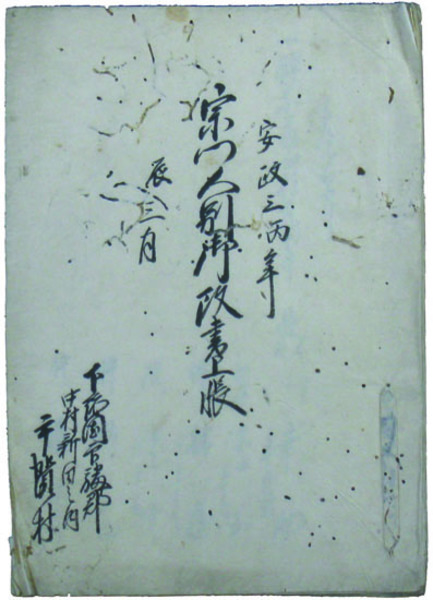 安政三丙年
宗門人別御改書上帳
辰三月
下総国 郡
中村新田之内
村